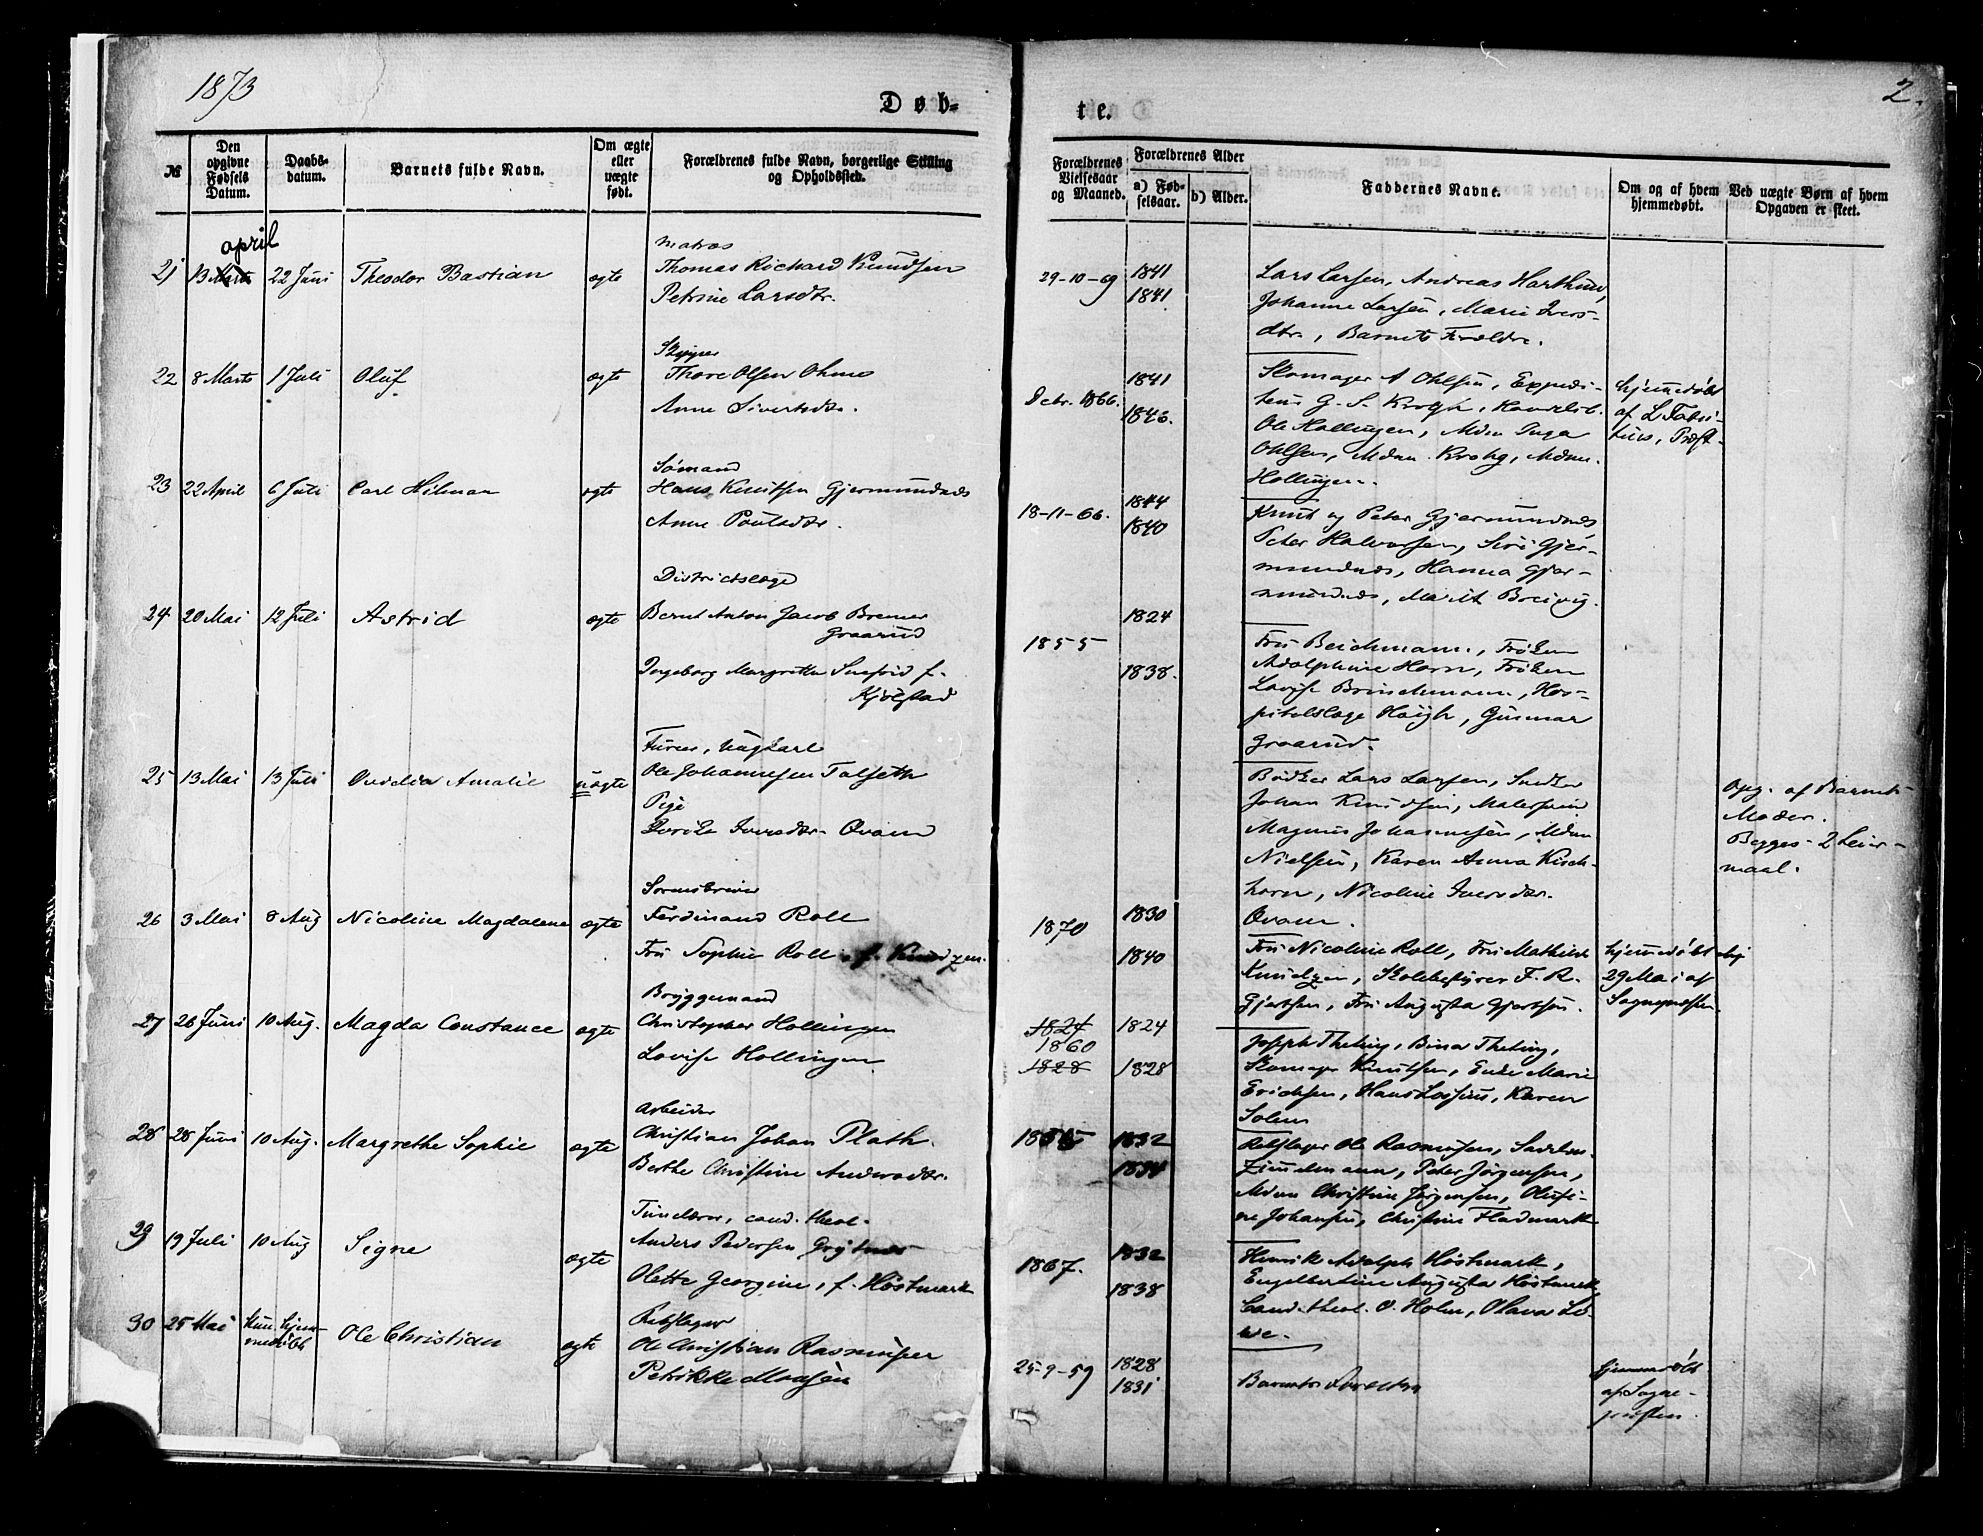 1873
Døb-
te.
2.
№
Den opgivne Fødsels Datum.
Daabs-datum.
Barnets fulde Navn.
Om ægte eller uægte født.
Forældrenes fulde Navn, borgerlige Stilling og Opholdssted.
Forældrenes Vielsesaar og Maaned.
Forældrenes Alder
a) Fød-selsaar.
b) Alder.
Faddernes Navne.
Om og af hvem hjemmedøbt.
Ved uægte Børn af hvem Opgaven er skeet.
april
21 13 22 Juni Theodor Bastian ægte
Matros
Thomas Richard Knudsen
Petrine Larsdtr.
29-10-69 1841
1841
Lars Larsen, Andreas
Johanne Larsen, Marie Ivers-
dtr., Barnets Forældre.
22 8 Marts 1 Juli Oluf ægte
Skipper
Thore Olsen
Anne Sivertsdtr.
Octbr. 1866. 1841
1846.
Skomager A Ohlsen, Expedi-
G. S. Krogh,
Ole Hollingen, Mdm Inga
Ohlsen, Mdm. Krohg, Mdm.
Hollingen.
hjemmedøbt
af L Fabri-
tius, Præst.
23 22 April 6 Juli Carl Hilmar ægte
Sømand
Hans Knutsen Gjermundnæs
Anne Poulsdtr.
18-11-66. 1844
1840
Knut og Peter Gjermundnæs
Peter Halvorsen, Siri Gjer-
mundnæs, Hanna Gjer-
mundnæs, Marit Breivig.
24 20 Mai 12 Juli Astrid ægte
Districtslæge
Bernt Anton Jacob Bremer
Graarud
Ingeborg Margrethe f.
Kjølstad
1855 1824
1838.
Fru Beichmann, Frøken
Adolphine Horn, Frøken
Lovise Brinchmann, Hos-
pitalslæge Høigh, Gunnar
Graarud.
25 13 Mai 13 Juli Ovidia Amalie uægte
Ungkarl
Ole Johannesen Talseth
Pige
Iversdtr. Øvam
Bødker Lars Larsen, Snedker
Johan Knudsen, Malersvend
Magnus Johannesen, Mdm
Nielsen, Karen Anna Kirch-
horn, Nicoline Iversdtr.
Øvam.
Opg. af Barnets
Moder.
Begges 2 Leier-
maal.
26 3 Mai 8 Aug Nicoline Magdalene ægte
Sorenskriver
Ferdinand Roll
Fru Sophie Roll f. Knudtzen.
1870 1830
1840
Fru Nicoline Roll, Fru Mathilde
Knudtzen, Skolebestyrer F. R.
Gjertsen, Fru Augusta Gjertsen.
hjemmedøbt
29 Mai af
Sognepresten.
27 26 Juni 10 Aug. Magda Constance ægte
Bryggemand
Christopher Hollingen
Lovise Hollingen
1824
1860
1828
1824
1828
Joseph Theting, Bina Theting,
Skomager Knutsen, Enke Marie
Erichsen, Hans Lossius, Karen
Solem
28 28 Juni 10 Aug. Margrethe Sophie ægte
Arbeider
Christian Johan Plath.
Berthe Christine Andersdtr.
1832
1834
Rebslager Ole Rasmussen, Sadelm.
Zimmelmann, Peter Jørgensen,
Mdm Christine Jørgensen, Olufi-
ne Johansen, Christine Fladmark
29 19 Juli 10 Aug Signe ægte
Timelærer, cand. theol.
Anders Pedersen Grytnes
Olette Georgine, f. Høstmark
1867. 1832
1838
Henrik Adolph Høstmark,
Engelbertine Augusta Høstmark
Cand. theol. O. Holm, Olava Lo-
we.
30 25 Mai Kun hjem-
medøbt
Ole Christian ægte
Rebslager
Ole Christian Rasmussen
Petrikke Monsen
25-9-59 1828
1831
Barnets Forældre
hjemmedøbt
af Sogne-
presten.